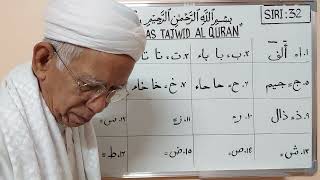 بِسْمِ ٱللَّهِ ٱلرَّحْمَٰنِ ٱلرَّحِيمِ
SIRI:32
AS TAJWID AL QURAN"
١. ا= ألف ٢. ب= با باء ٣. ت= تا
٥. ج= جيم ٦. ح= حا حاء ٧. خ= خا خاء
٩. ذ= ذال ١٠. ر= ١١. ز= ١٢. س=
١٣. ش= ١٤. ص= ١٥. ض= ١٦. ط=